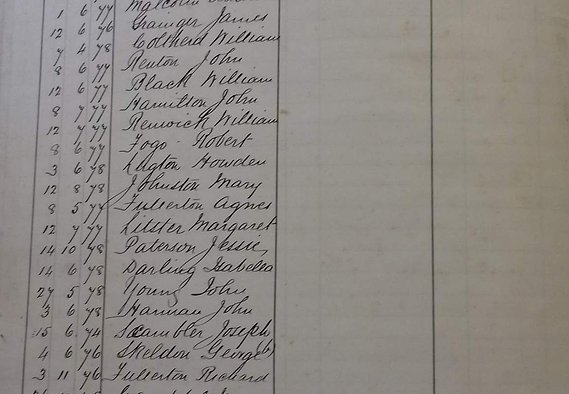 1 6 77 Malcolm
12 6 76 Grainger James
7 4 78 Coltherd William
8 6 77 Renton John
12 6 77 Black William
8 7 77 Hamilton John
12 7 77 Renwick William
8 6 77 Fogo Robert
3 6 78 Lugton Howden
12 8 78 Johnston Mary
8 5 77 Fullerton Agnes
12 7 77 Lilster Margaret
14 10 78 Paterson Jessie
14 6 78 Darling Isabella
27 5 78 Young John
3 6 78 Harman John
15 6 74 Scambler Joseph
4 6 76 Skeldon George
3 11 76 Fullerton Richard